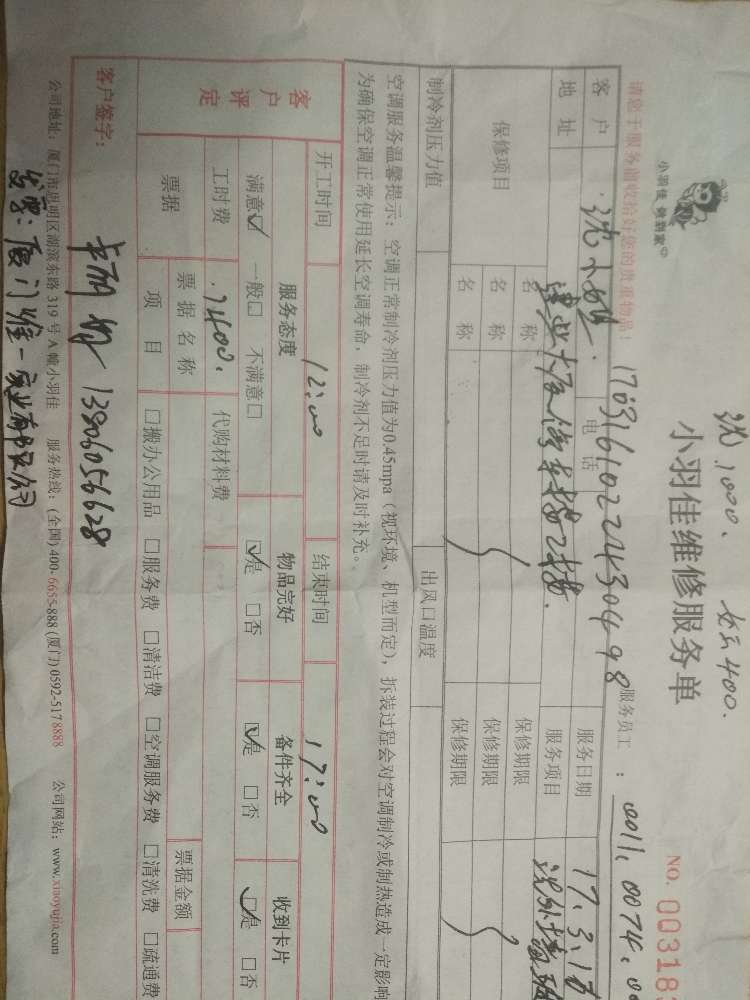 沈1000、 长云400.
小羽佳 做到家
小羽佳维修服务单
NO. 00318
请您于服务前收拾好您的贵重物品!
17031610224304498
服务员工: 0011、0074、00
客户 沈小姐 电话 服务日期 17.3.17
地址 服务项目
保修项目 名称 保修期限
名称 保修期限
名称 保修期限
制冷剂压力值 出风口温度
空调服务温馨提示:空调正常制冷剂压力值为0.45mpa(视环境、机型而定),拆装过程会对空调制冷或制热造成一定影响
为确保空调正常使用延长空调寿命,制冷剂不足时请及时补充。
开工时间 12:00 结束时间 17:00
客户评定 服务态度 物品完好 备件齐全 收到卡片
满意☑ 一般□ 不满意□ ☑是 □否 ☑是 □否 ☑是 □否
工时费 1400. 代购材料费
票据 票据名称 票据金额
项目 □搬办公用品 □服务费 □清洁费 □空调服务费 □清洗费 □疏通费
客户签字: 13806056628
公司地址:厦门市思明区湖滨东路319号A幢小羽佳 服务热线:(全国)400-6655-888(厦门)0592-5178888 公司网站:www.xiaoyujia.com
发票:厦门唯一实业有限公司